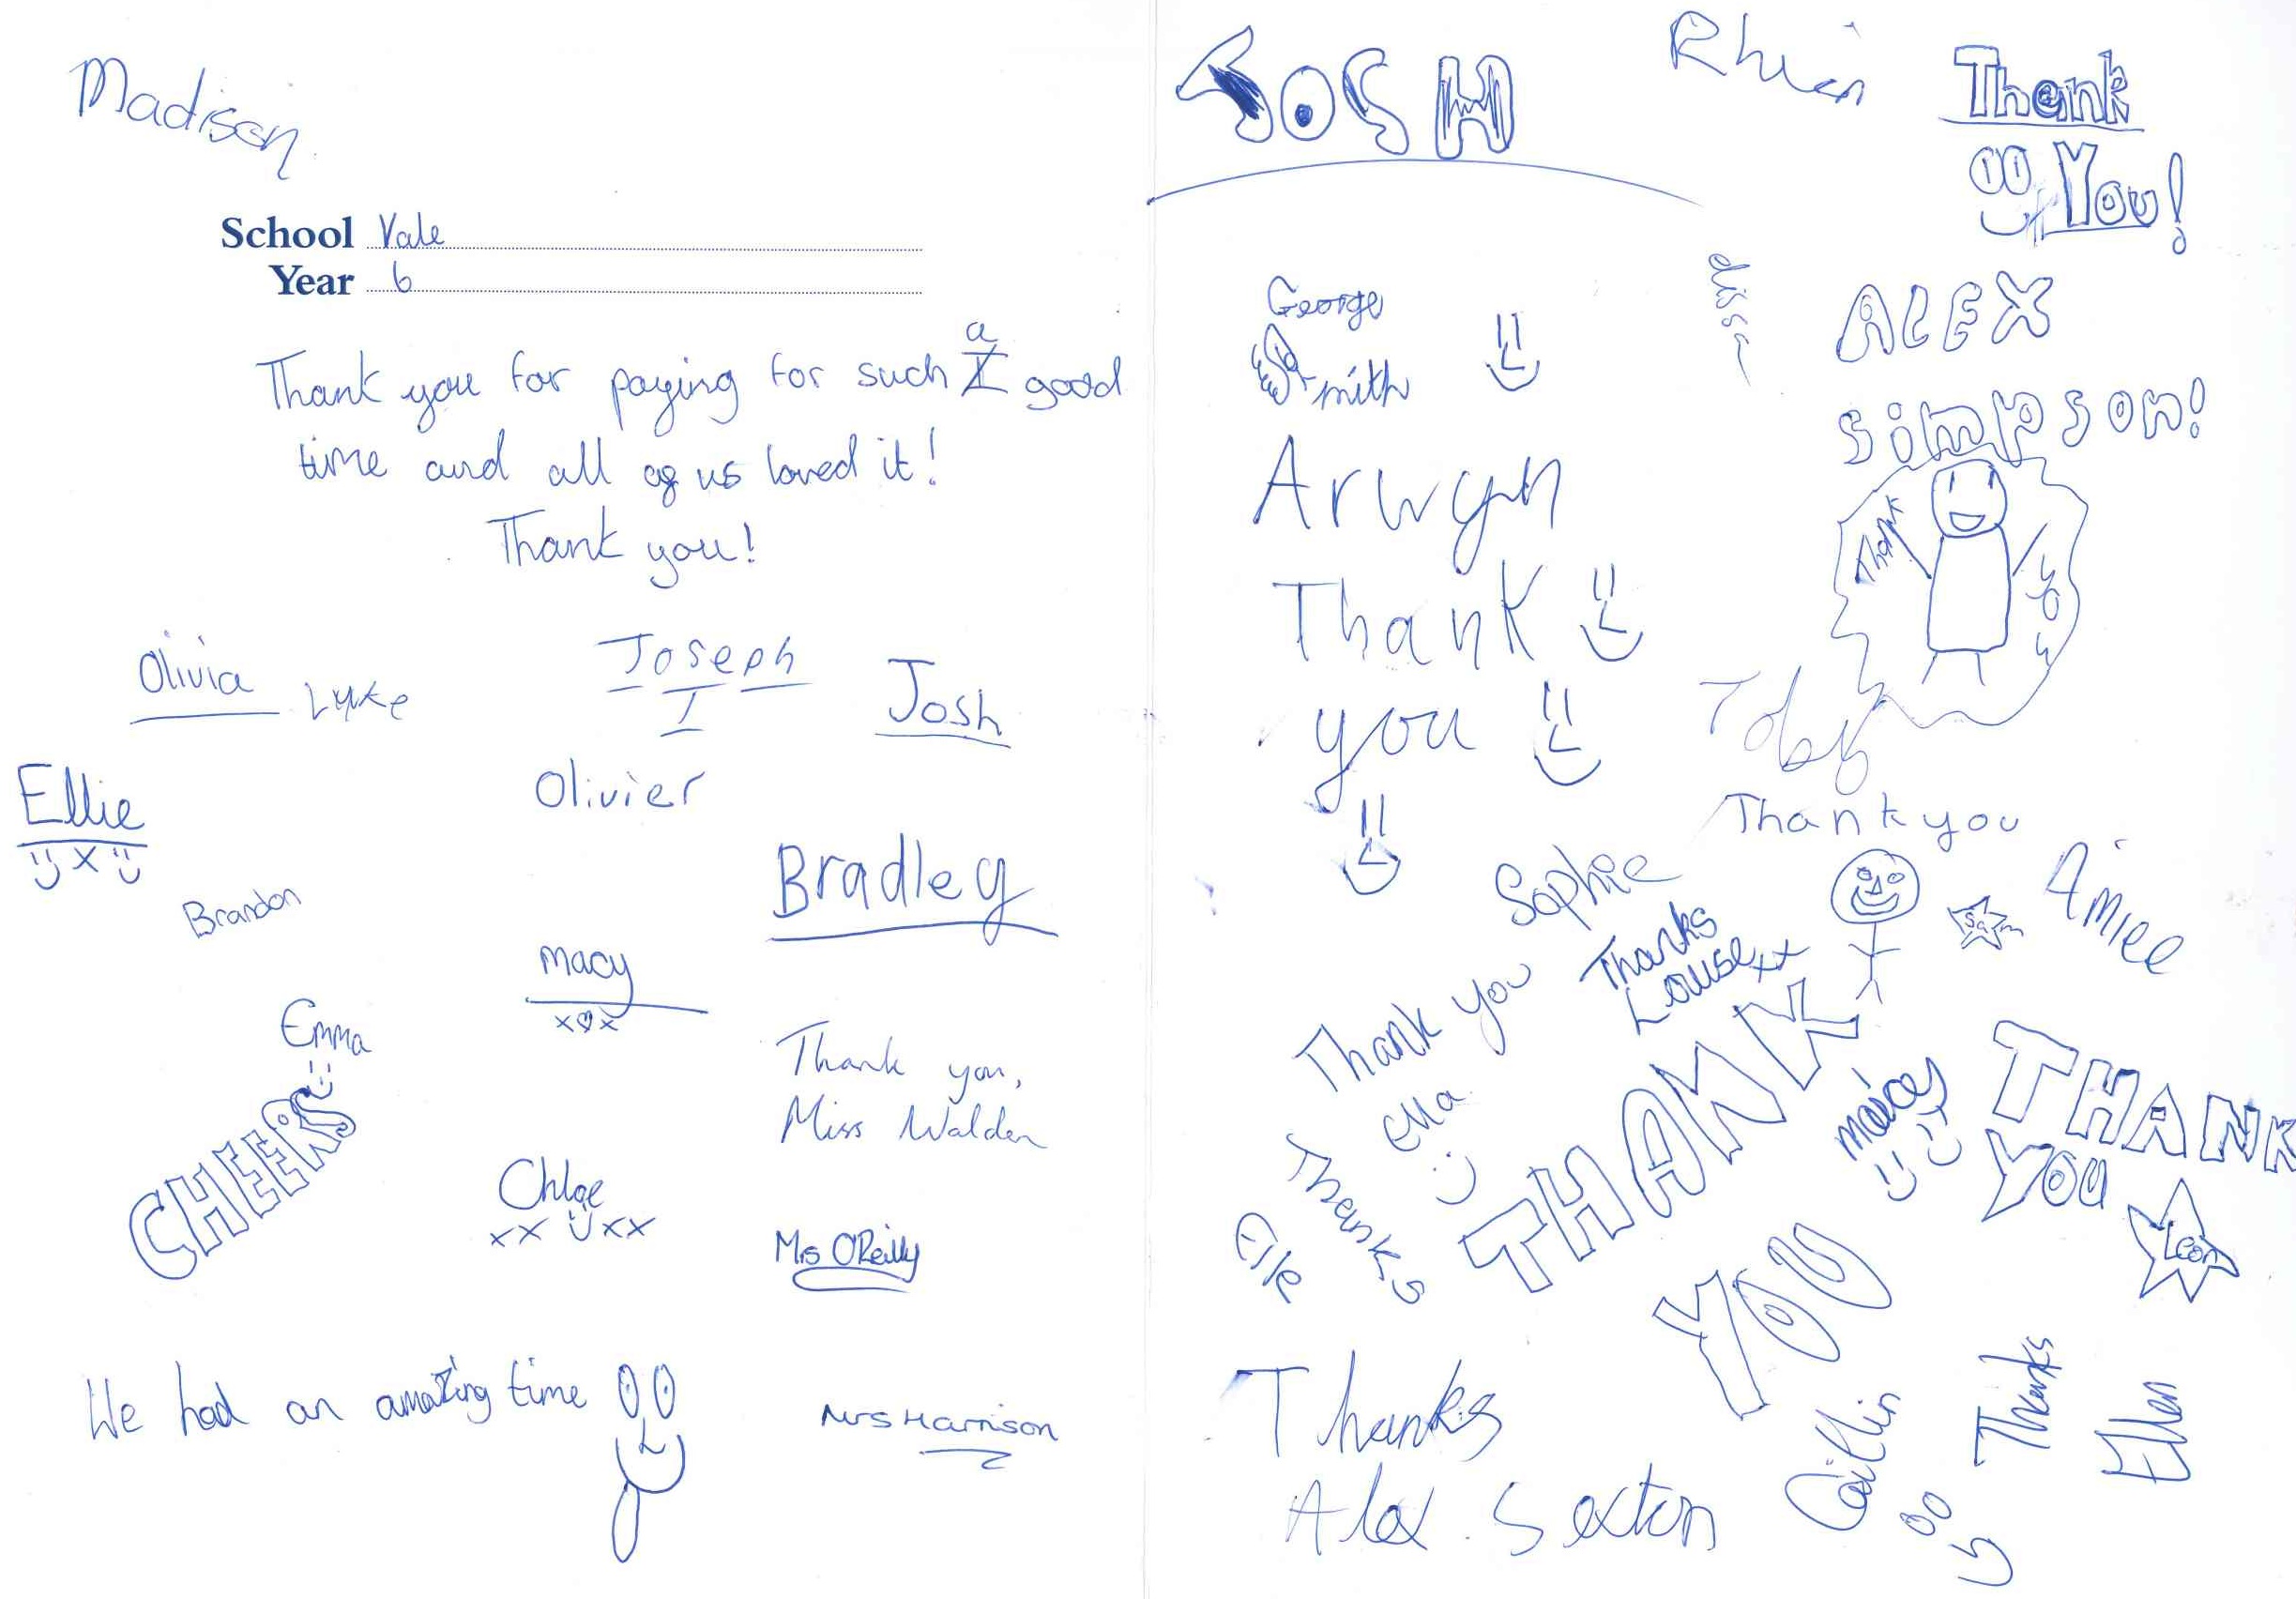 Madison
School Vale
Year 6
Thank you for paying for such a good
time and all of us loved it!
Thank you!
Olivia
Lyke
Joseph
I
Josh
Ellie
x
Olivier
Bradley
Brandon
Macy
x x
Emma
CHEERS
Thank you,
Miss Walden
Chloe
xx xx
Mrs O'Reilly
We had an amazing time
Mrs Harrison
JOSH
Rhian
Thank
You!
George
Smith
ALEX
Simpson!
Arwyn
Thank
you
Thank
you
Toby
Thank you
Sophie
Thanks
Louise xx
Sam
Aimee
Thank you
Ella
THANK
YOU
Maicey
THANK
YOU
Leon
Thanks
Elle
Thanks
Alex Sexton
Caitlin
Thanks
Ellen